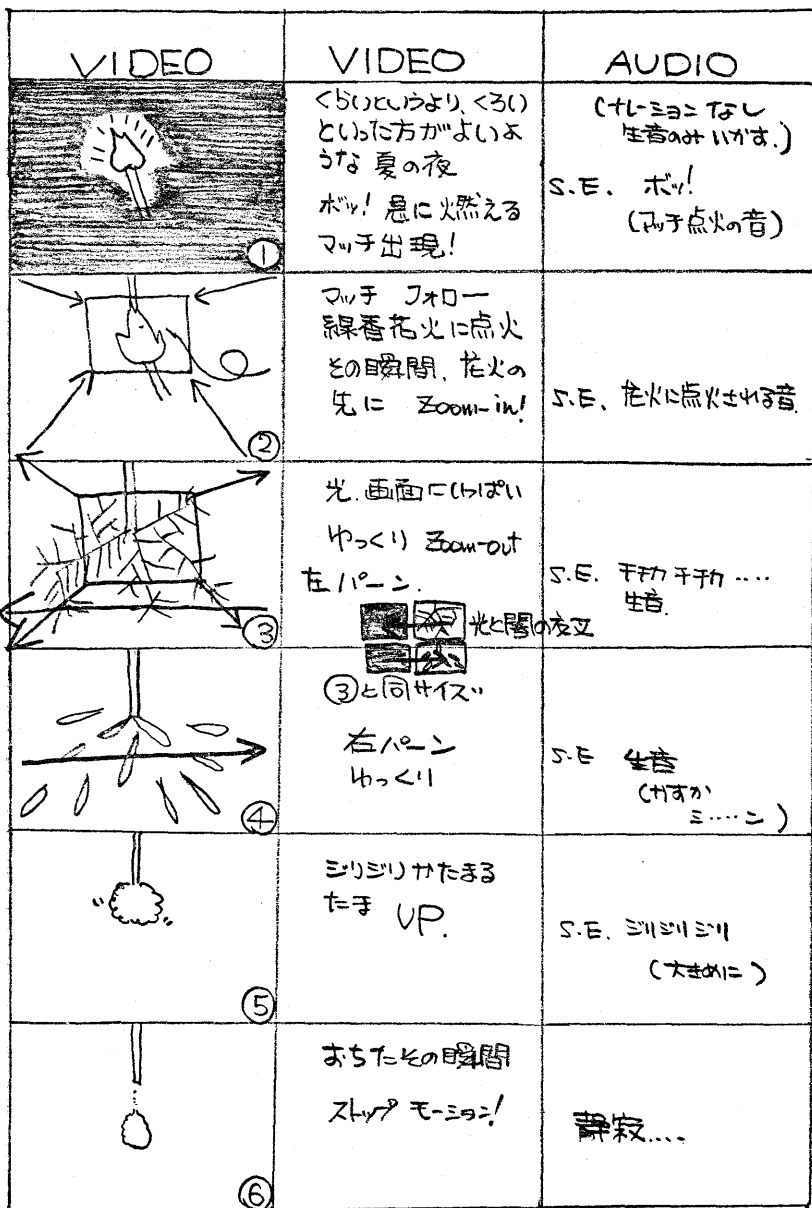 VIDEO
VIDEO
AUDIO
①
くらいというより、くろい
といった方がよいよ
うな 夏の夜
ボッ! 急に燃える
マッチ出現!
(ナレーション なし
生音のみ いかす.)
S.E. ボッ!
(マッチ点火の音)
②
マッチ フォロー
線香花火に点火
その瞬間、花火の
先に Zoom-in!
S.E. 花火に点火される音.
③
光.画面にいっぱい
ゆっくり Zoom-out
左パーン.
光と闇の交互
S.E. チチカ チチカ ‥‥
生音.
④
③と同サイズ
右パーン
ゆっくり
S.E 生音
(かすか
ミ‥‥ン)
⑤
ジリジリ かたまる
たま UP.
S.E. ジリジリジリ
(大きめに)
⑥
おちたその瞬間
ストップ モーション!
静寂‥‥